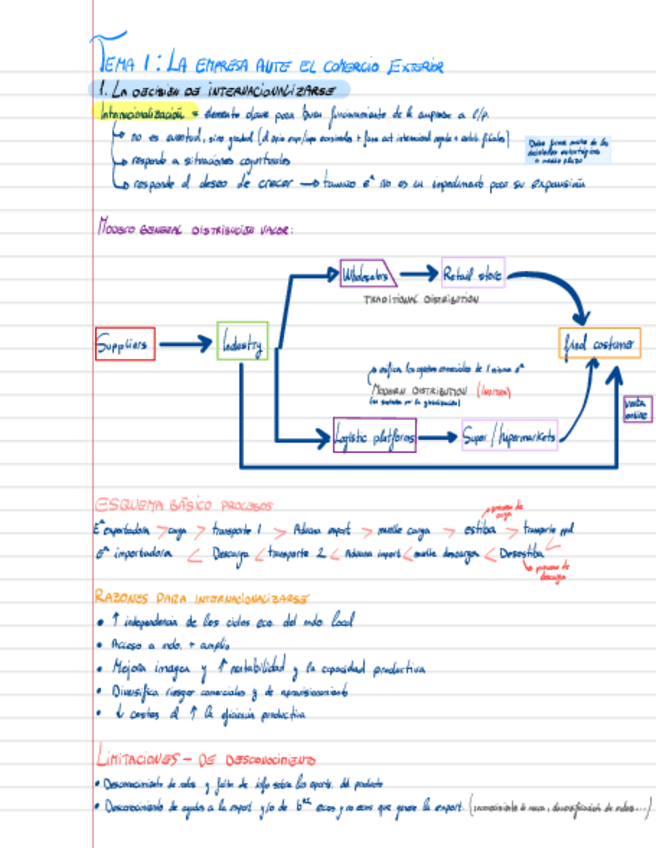 TEMA 1: LA EMPRESA ANTE EL COMERCIO EXTERIOR
1. LA DECISIÓN DE INTERNACIONALIZARSE
Internacionalización = elemento clave para buen funcionamiento de la empresa a l/p.
no es eventual, sino gradual
Debe formar parte de las decisiones estratégicas a medio plazo
responde a situaciones coyunturales
responde al deseo de crecer → tamaño eª no es un impedimento para su expansión
MODELO GENERAL DISTRIBUCIÓN VALOR:
Wholesalers → Retail store
TRADITIONAL DISTRIBUTION
Suppliers → Industry
final costumer
MODERN DISTRIBUTION
venta online
Logistic platforms → Super/hipermarkets
ESQUEMA BÁSICO PROCESOS
proceso de carga
Eª exportadora > carga > transporte 1 > Aduana export > muelle carga > estiba > transporte ppal
eª importadora < Descarga < transporte 2 < Aduana import < muelle descarga < Desestiba
proceso de descarga
RAZONES PARA INTERNACIONALIZARSE
• ↑ independencia de los ciclos eco. del mdo. local
• Acceso a mdo. + amplio
• Mejora imagen y ↑ rentabilidad y la capacidad productiva
• Diversifica riesgos comerciales y de aprovisionamiento
• ↓ costes al ↑ la eficiencia productiva
LIMITACIONES – DE DESCONOCIMIENTO
• Desconocimiento de mdos. y falta de info sobre las oports. del producto
• Desconocimiento de ayudas a la export. y/o de bºs ecos y no ecos que genere la export.